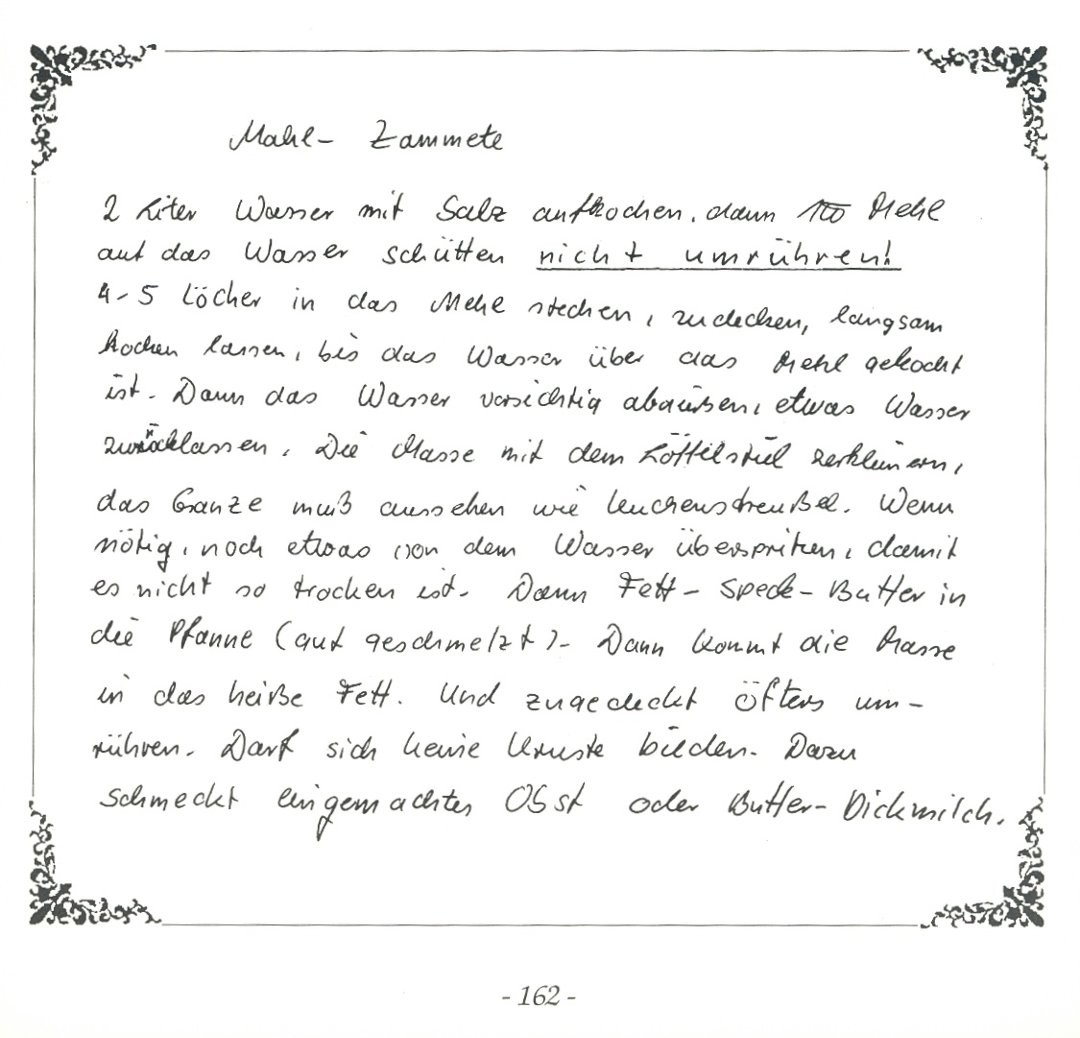 Mahl- Zammete
2 Liter Wasser mit Salz aufkochen, dann Mehl
auf das Wasser schütten nicht umrühren!
4-5 Löcher in das Mehl stechen, zudecken, langsam
kochen lassen, bis das Wasser über das Mehl gekocht
ist. Dann das Wasser vorsichtig abgießen, etwas Wasser
zurücklassen. Die Masse mit dem Löffelstiel zerkleinern,
das Ganze muß aussehen wie Kuchenstreußel. Wenn
nötig, noch etwas von dem Wasser überspritzen, damit
es nicht so trocken ist. Dann Fett - Speck - Butter in
die Pfanne (gut geschmelzt). Dann kommt die Masse
in das heiße Fett. Und zugedeckt öfters um-
rühren. Darf sich keine Kruste bilden. Dazu
schmeckt eingemachtes Obst oder Butter-Dickmilch.
- 162 -